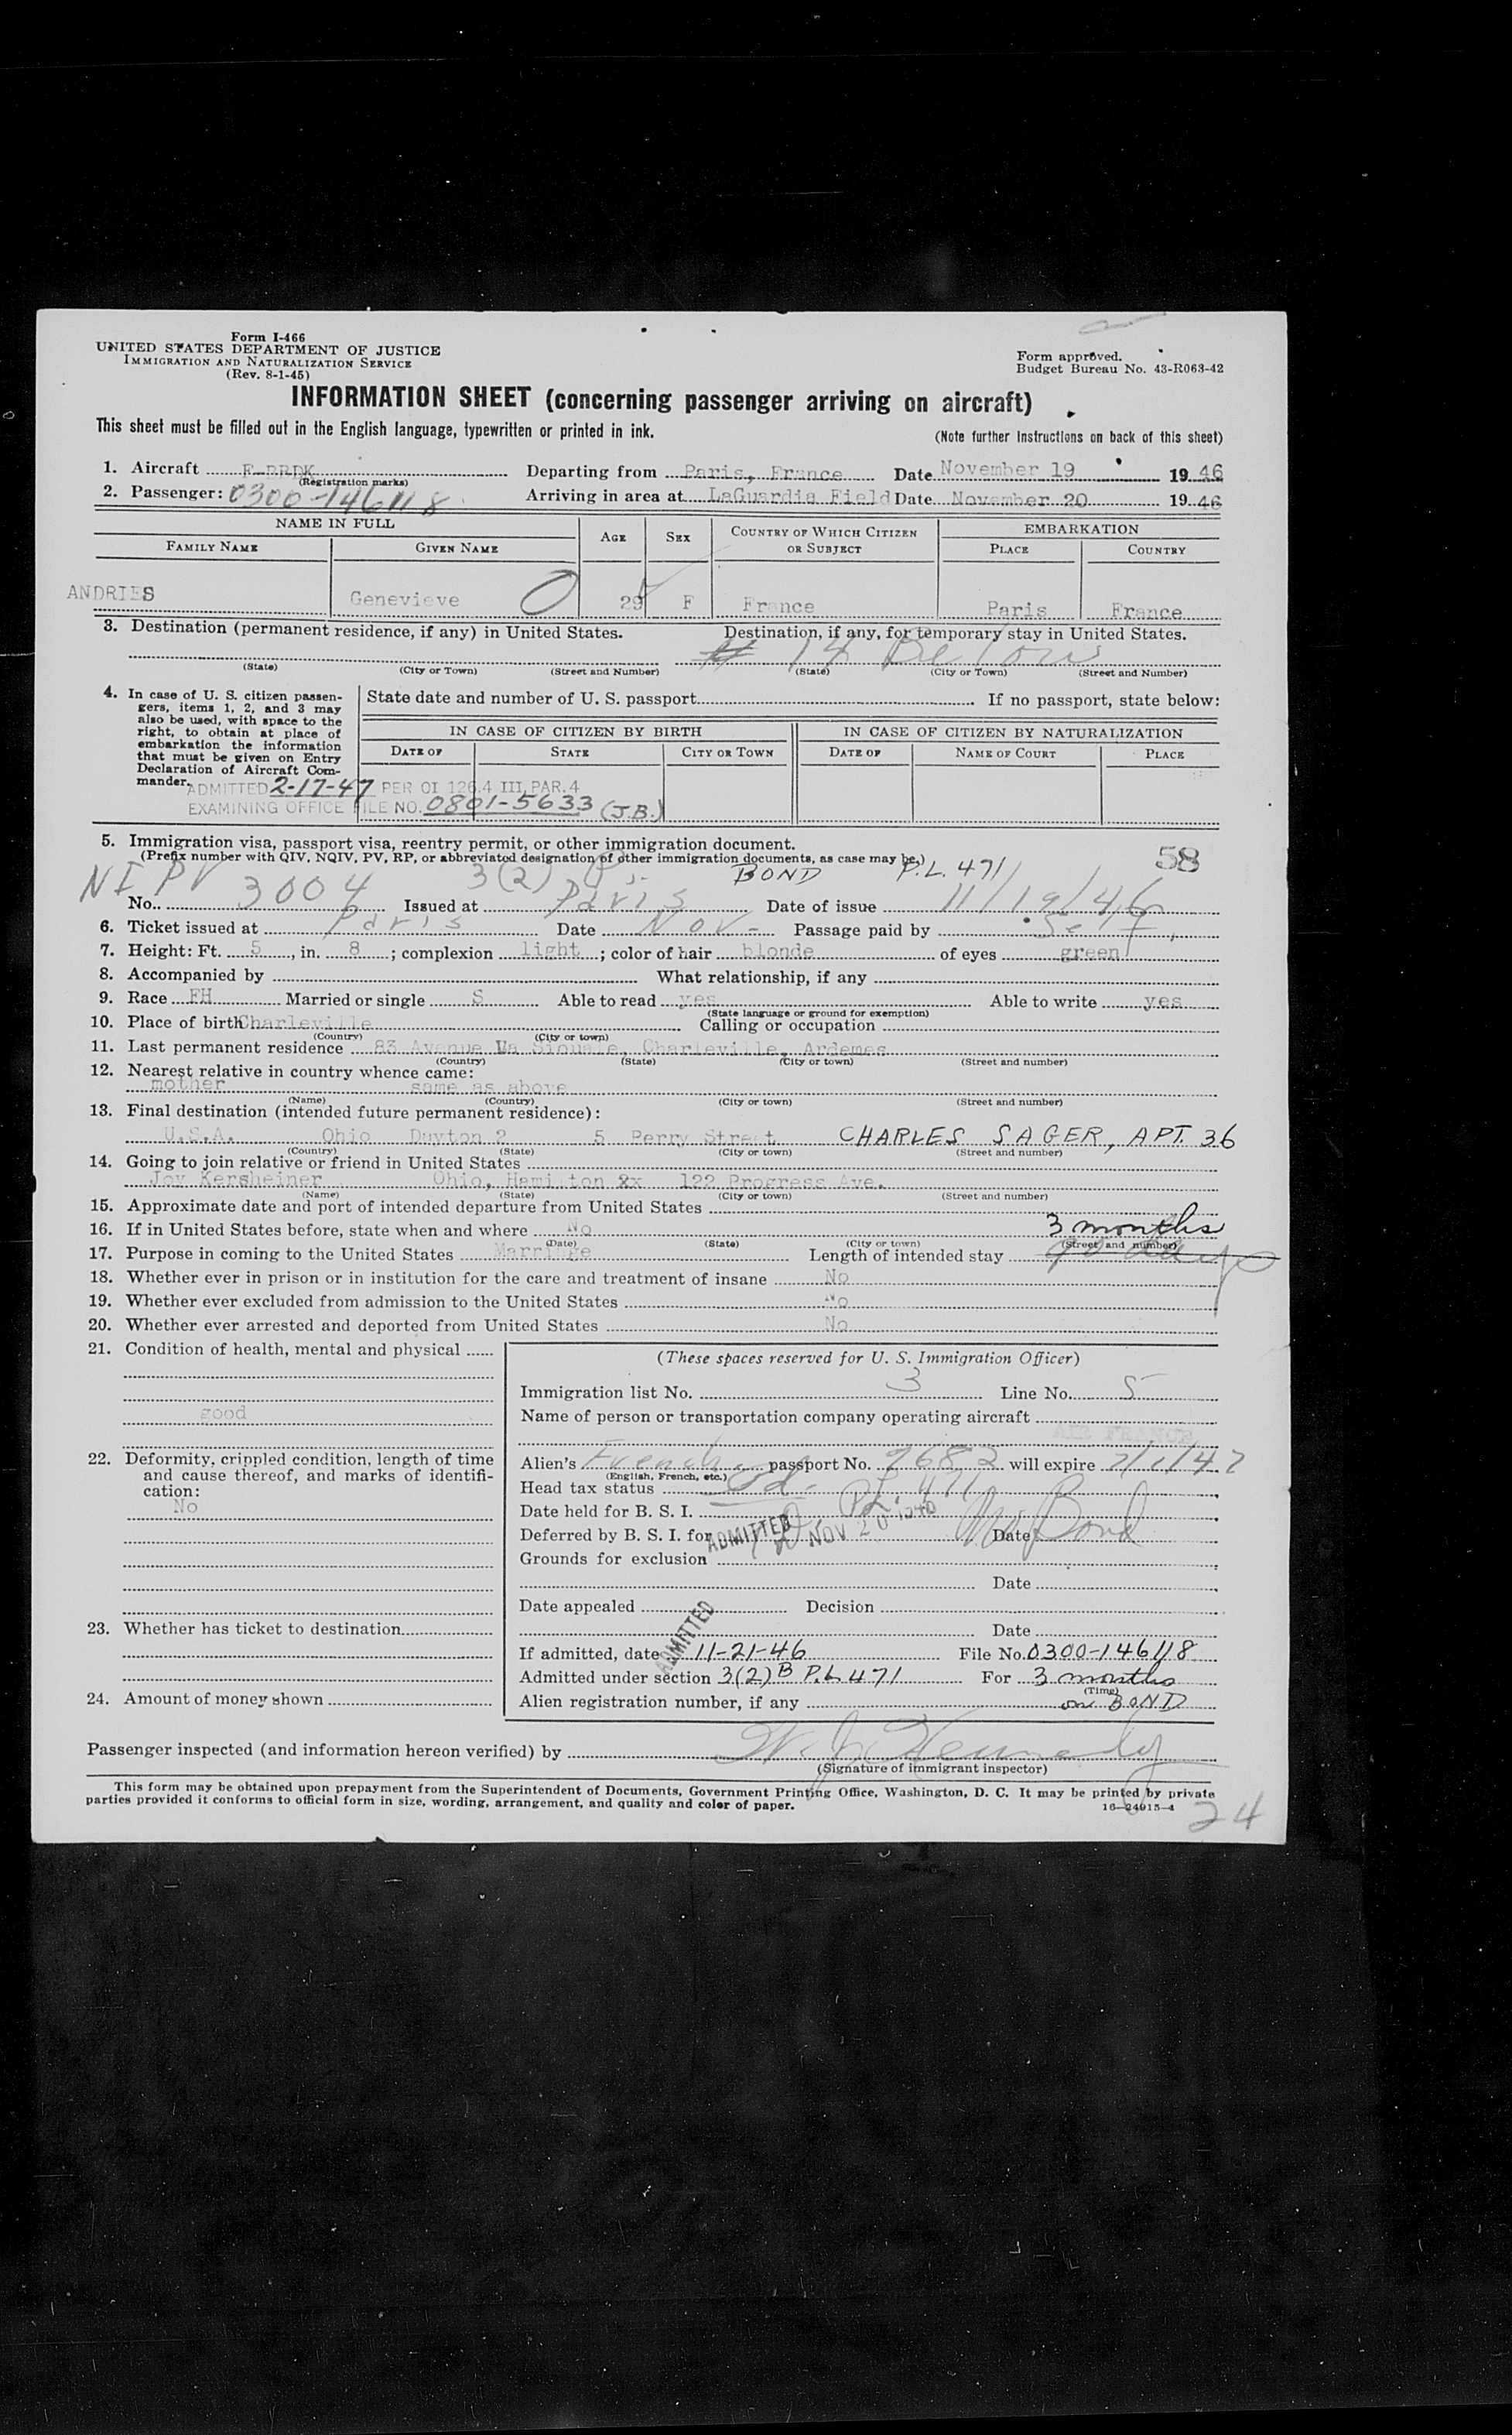 Form I-466
UNITED STATES DEPARTMENT OF JUSTICE
IMMIGRATION AND NATURALIZATION SERVICE
(Rev. 8-1-45)
Form approved.
Budget Bureau No. 43-R063-42
INFORMATION SHEET (concerning passenger arriving on aircraft)
This sheet must be filled out in the English language, typewritten or printed in ink.
(Note further instructions on back of this sheet)
1. Aircraft Departing from Paris, France Date November 19 1946
(Registration marks)
2. Passenger: 0300-146118 Arriving in area at LaGuardia Field Date November 20 1946
NAME IN FULL AGE SEX COUNTRY OF WHICH CITIZEN OR SUBJECT EMBARKATION
FAMILY NAME GIVEN NAME PLACE COUNTRY
ANDRIES Genevieve 29 F France Paris France
3. Destination (permanent residence, if any) in United States. Destination, if any, for temporary stay in United States.
# 14 Below
(State) (City or Town) (Street and Number) (State) (City or Town) (Street and Number)
4. In case of U. S. citizen passengers, items 1, 2, and 3 may also be used, with space to the right, to obtain at place of embarkation the information that must be given on Entry Declaration of Aircraft Commander.
State date and number of U. S. passport If no passport, state below:
IN CASE OF CITIZEN BY BIRTH IN CASE OF CITIZEN BY NATURALIZATION
DATE OF STATE CITY OR TOWN DATE OF NAME OF COURT PLACE
ADMITTED 2-17-47 PER OI 126.4 III PAR.4
EXAMINING OFFICE FILE NO. 0801-5633 (J.B.)
5. Immigration visa, passport visa, reentry permit, or other immigration document.
(Prefix number with QIV, NQIV, PV, RP, or abbreviated designation of other immigration documents, as case may be.)
58
3(2) BOND P.L. 471
NI PV
No. 3004 Issued at Paris Date of issue 11/19/46
6. Ticket issued at Paris Date Nov - Passage paid by Self
7. Height: Ft. 5, in. 8; complexion light; color of hair blonde of eyes green
8. Accompanied by What relationship, if any
9. Race FH Married or single S Able to read yes Able to write yes
(State language or ground for exemption)
10. Place of birth Charleville Calling or occupation
(Country) (City or town)
11. Last permanent residence 83 Avenue Charleville, Ardemes
(Country) (State) (City or town) (Street and number)
12. Nearest relative in country whence came:
mother same as above
(Name) (Country) (City or town) (Street and number)
13. Final destination (intended future permanent residence):
U.S.A. Ohio Dayton 2 5 Perry Street CHARLES SAGER, APT. 36
(Country) (State) (City or town) (Street and number)
14. Going to join relative or friend in United States
Joy Kersheiner Ohio, Hamilton 122 Progress Ave.
(Name) (State) (City or town) (Street and number)
15. Approximate date and port of intended departure from United States
16. If in United States before, state when and where No
3 months
(Date) (State) (City or town) (Street and number)
17. Purpose in coming to the United States Marriage Length of intended stay 90 days
18. Whether ever in prison or in institution for the care and treatment of insane No
19. Whether ever excluded from admission to the United States No
20. Whether ever arrested and deported from United States No
21. Condition of health, mental and physical
good
22. Deformity, crippled condition, length of time and cause thereof, and marks of identification:
No
23. Whether has ticket to destination
24. Amount of money shown
(These spaces reserved for U. S. Immigration Officer)
Immigration list No. 3 Line No. 5
Name of person or transportation company operating aircraft
AIR FRANCE
Alien's French passport No. 7682 will expire
(English, French, etc.)
Head tax status
Date held for B. S. I. PL. 471
Deferred by B. S. I. for ADMITTED NOV 20 Date Bond
Grounds for exclusion
Date
Date appealed Decision
Date
ADMITTED
If admitted, date 11-21-46 File No. 0300-146118
Admitted under section 3(2) B P.L 471 For 3 months
(Time)
Alien registration number, if any on BOND
Passenger inspected (and information hereon verified) by W. J. Kennedy
(Signature of immigrant inspector)
This form may be obtained upon prepayment from the Superintendent of Documents, Government Printing Office, Washington, D. C. It may be printed by private
parties provided it conforms to official form in size, wording, arrangement, and quality and color of paper.
16-24915-4
24